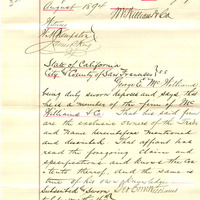 August 1894
McWilliams & Co
State of California
City & County of San Francisco } ss
George E. McWilliams
being duly sworn deposes and says that
he is a member of the firm of Mc
Williams & Co That his said firm
are the exclusive owners of the Trade
and Name hereinbefore mentioned
and described. That affiant has
read the foregoing claim and
specifications and knows the con
tents thereof, and the same is
true of his own
Subscribed & Sworn